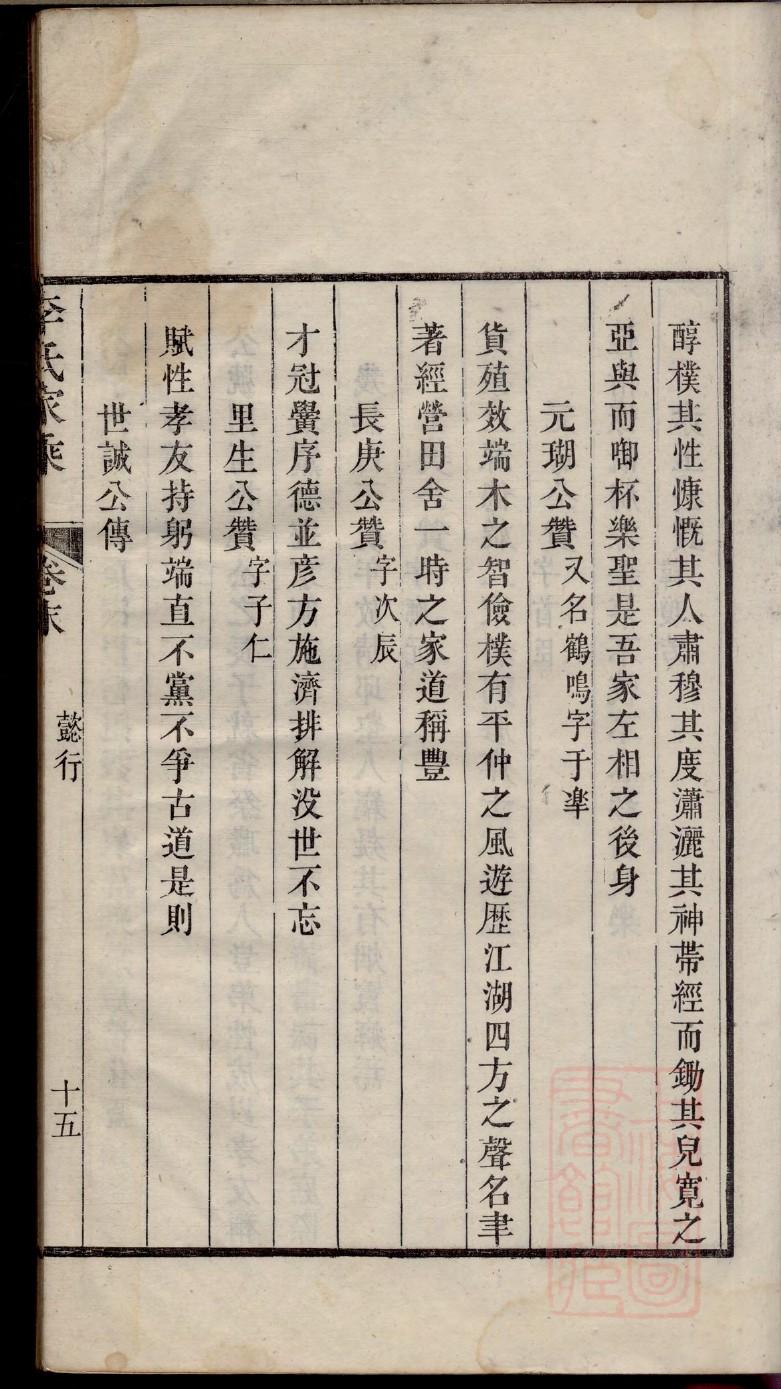 醇樸其性慷慨其人肅穆其度瀟灑其神帶經而鋤其兒寬之
亞與而啣杯樂聖是吾家左相之後身
元瑚公贊 又名鶴鳴字于準
貨殖效端木之智儉樸有平仲之風遊歷江湖四方之聲名聿
著經營田舍一時之家道稱豐
長庚公贊 字次辰
才冠黌序德並彥方施濟排解没世不忘
里生公贊 字子仁
賦性孝友持躬端直不黨不爭古道是則
世誠公傳
李氏家乘 卷末 懿行 十五